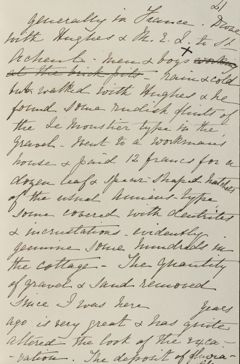 21
generally in France. Drove
with Hughes & M. E. J. to St
Acheul. men & boys
at the brick pits – rain & cold
but walked with Hughes & he
found some rudish flints of
the Le Moustier type in the
gravel. Went to a workmans
house & paid 12 francs for a
dozen leaf & spear shaped hatchets
of the usual Amiens type
some covered with dentrites
& incrustations. evidently
genuine some hundreds in
the cottage – The quantity
of gravel & sand removed
since I was here years
ago is very great & has quite
altered the look of the exca-
vation. The deposit of